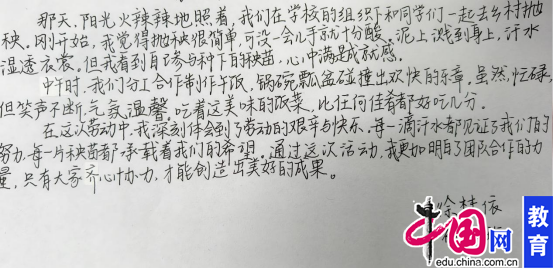 那天,阳光火辣辣地照着,我们在学校的组织下和同学们一起去乡村抛
秧。刚开始,我觉得抛秧很简单,可没一会儿手就十分酸。泥土溅到身上,汗水
湿透衣裳。但我看到自己参与种下的秧苗,心中满是成就感。
中午时,我们分工合作制作午饭,锅碗瓢盆碰撞出欢快的乐章。虽然忙碌,
但笑声不断,气氛温馨。吃着这美味的饭菜,比任何佳肴都好吃几分。
在这次劳动中,我深刻体会到了劳动的艰辛与快乐。每一滴汗水都见证了我们的
努力,每一片秧苗都承载着我们的希望。通过这次活动,我更加明白了团队合作的力
量,只有大家齐心协力,才能创造出美好的成果。
涂梦依
中国网
教育
edu.china.com.cn